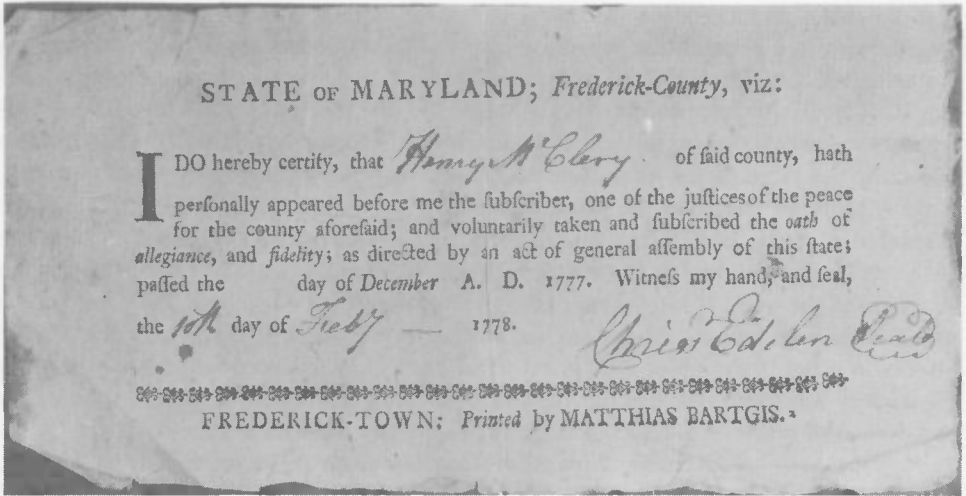 STATE OF MARYLAND; Frederick-County, viz:
I DO hereby certify, that Henry McClery of ſaid county, hath
perſonally appeared before me the ſubſcriber, one of the juſtices of the peace
for the county aforeſaid; and voluntarily taken and ſubſcribed the oath of
allegiance, and fidelity; as directed by an act of general aſſembly of this ſtate;
paſſed the day of December A. D. 1777. Witneſs my hand, and ſeal,
the 10th day of Feby — 1778. Chrisr Edelen Seal
FREDERICK-TOWN: Printed by MATTHIAS BARTGIS.